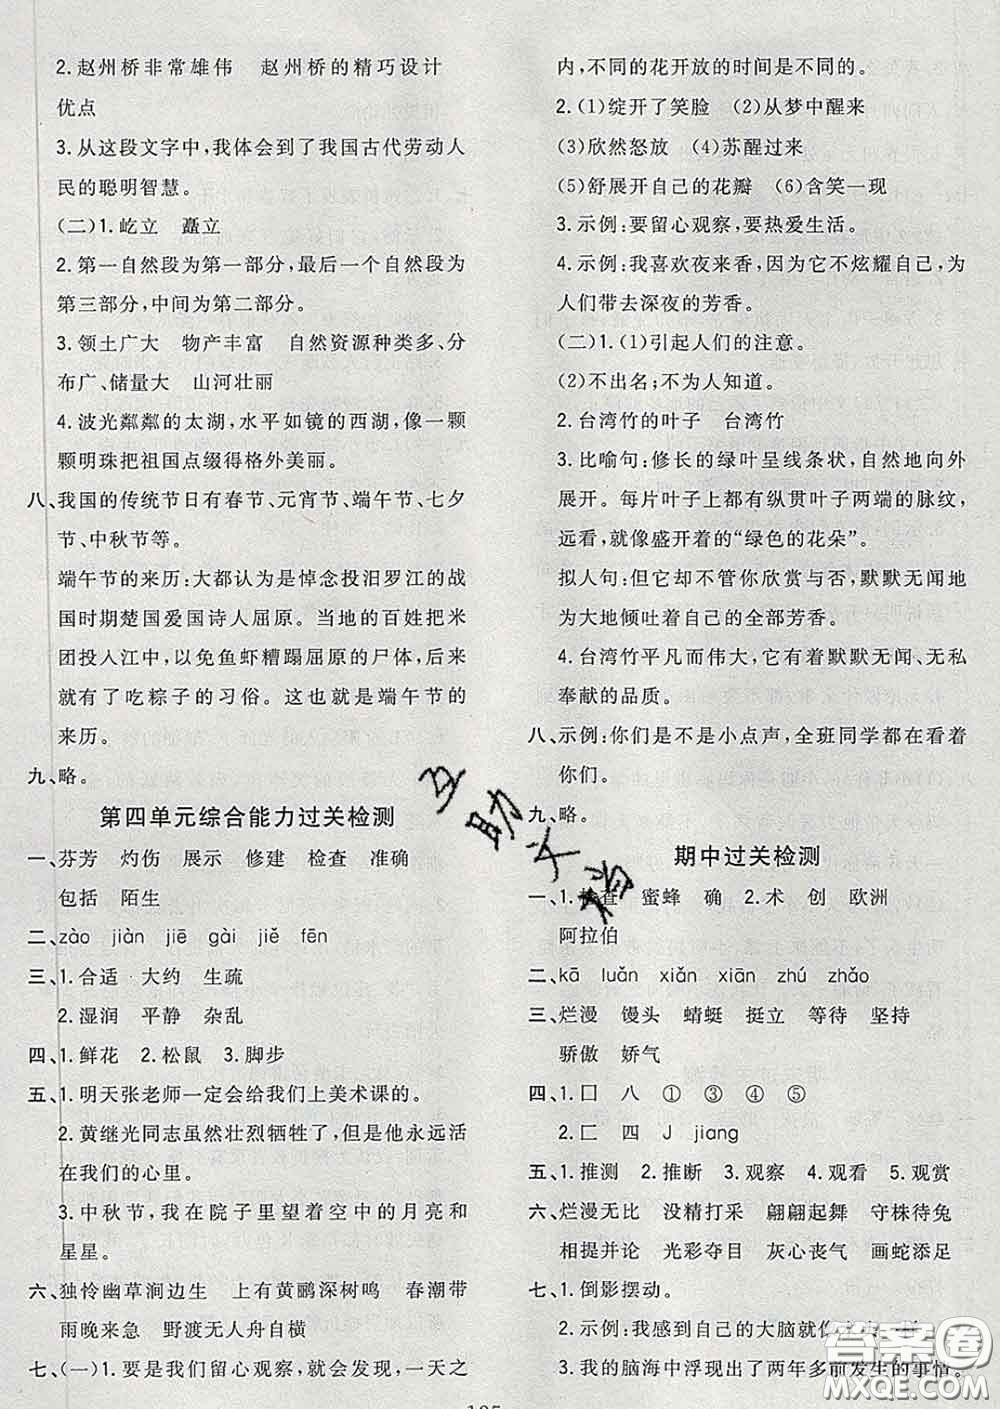 2.赵州桥非常雄伟　赵州桥的精巧设计
优点
3.从这段文字中,我体会到了我国古代劳动人
民的聪明智慧。
(二)1.屹立　矗立
2.第一自然段为第一部分,最后一个自然段为
第三部分,中间为第二部分。
3.领土广大　物产丰富　自然资源种类多、分
布广、储量大　山河壮丽
4.波光粼粼的太湖,水平如镜的西湖,像一颗
颗明珠把祖国点缀得格外美丽。
八、我国的传统节日有春节、元宵节、端午节、七夕
节、中秋节等。
端午节的来历:大都认为是悼念投汨罗江的战
国时期楚国爱国诗人屈原。当地的百姓把米
团投入江中,以免鱼虾糟蹋屈原的尸体,后来
就有了吃粽子的习俗。这也就是端午节的
来历。
九、略。
第四单元综合能力过关检测
一、芬芳　灼伤　展示　修建　检查　准确
包括　陌生
二、zào　jiàn　jiē　gài　jiě　fēn
三、1.合适　大约　生疏
2.湿润　平静　杂乱
四、1.鲜花　2.松鼠　3.脚步
五、1.明天张老师一定会给我们上美术课的。
2.黄继光同志虽然壮烈牺牲了,但他永远活
在我们的心里。
3.中秋节,我在院子里望着空中的月亮和
星星。
六、独怜幽草涧边生　上有黄鹂深树鸣　春潮带
雨晚来急　野渡无人舟自横
七、(一)1.要是我们留心观察,就会发现,一天之
内,不同的花开放的时间是不同的。
2.(1)绽开了笑脸　(2)从梦中醒来
(3)欣然怒放　(4)苏醒过来
(5)舒展开自己的花瓣　(6)含笑一现
3.示例:要留心观察,要热爱生活。
4.示例:我喜欢夜来香,因为它不炫耀自己,为
人们带去深夜的芳香。
(二)1.(1)引起人们的注意。
(2)不出名;不为人知道。
2.台湾竹的叶子　台湾竹
3.比喻句:修长的绿叶呈线条状,自然地向外
展开。每片叶子上都有纵贯叶子两端的脉纹,
远看,就像盛开着的“绿色的花朵”。
拟人句:但它却不管你欣赏与否,默默无闻地
为大地倾吐着自己的全部芳香。
4.台湾竹平凡而伟大,它有着默默无闻、无私
奉献的品质。
八、示例:你们是不是小点声,全班同学都在看着
你们。
九、略。
期中过关检测
一、1.检查　蜜蜂　确　2.术　创　欧洲
阿拉伯
二、kā　luǎn　xiǎn　xiān　zhú　zhǎo
三、烂漫　馒头　蜻蜓　挺立　等待　坚持
骄傲　娇气
四、1.囗　八　①　③　④　⑤
2.匚　四　J　jiang
五、1.推测　2.推断　3.观察　4.观看　5.观赏
六、烂漫无比　没精打采　翩翩起舞　守株待兔
相提并论　光彩夺目　灰心丧气　画蛇添足
七、1.倒影摆动。
2.示例:我感到自己的大脑就像
3.我的脑海中浮现出了两年多前发生的事情。
互助文档
答案圈
MXQE.COM